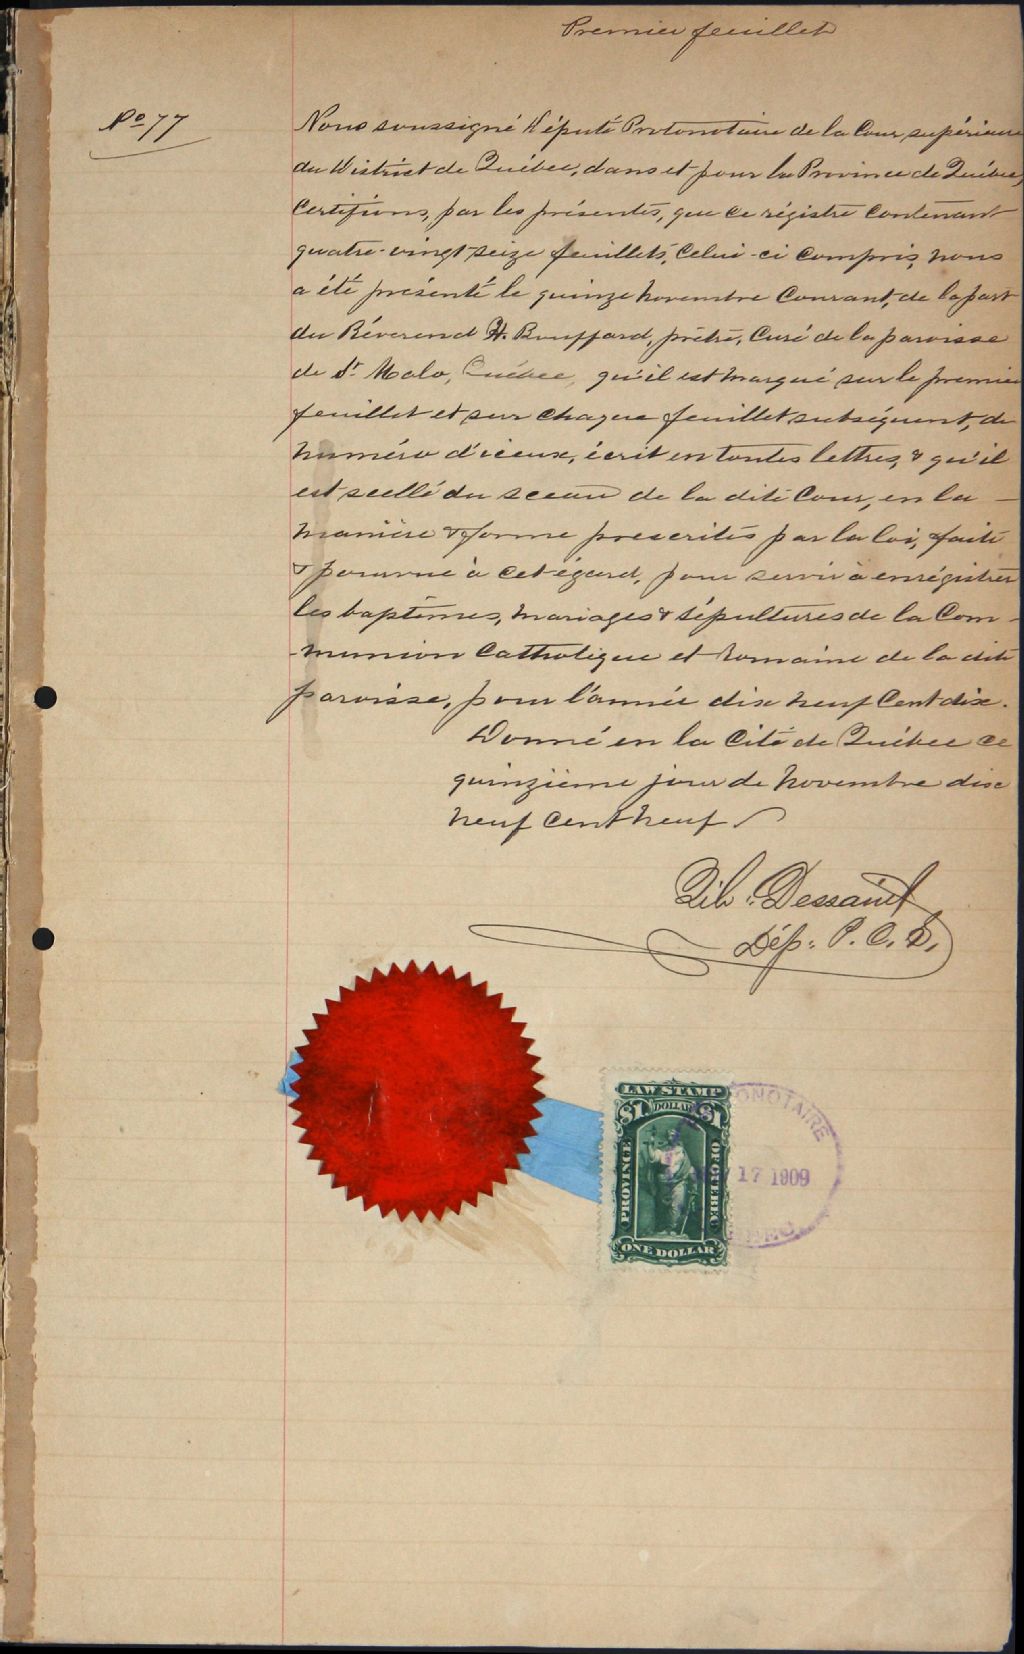 Premier feuillet
No 77
Nous soussigné Député Protonotaire de la Cour supérieure
du District de Québec, dans et pour la Province de Québec,
Certifions, par les présentes, que ce régistre contenant
quatre-vingt-seize feuillets, celui-ci compris, nous
a été présenté le quinze novembre Courant, de la part
du Révérend H. Bouffard, prêtre, Curé de la paroisse
de St Malo, Québec, qu'il est marqué sur le premier
feuillet et sur chaque feuillet subséquent, du
numéro d'iceux, écrit en toutes lettres, & qu'il
est scellé du sceau de la dite Cour, en la
manière & forme prescrites par la loi, faite
& pourvue à cet égard, pour servir à enrégistrer
les baptêmes, mariages & sépultures de la Com-
-munion Catholique et Romaine de la dite
paroisse, pour l'année dix neuf Cent dix.
Donné en la Cité de Québec ce
quinzième jour de novembre dix
neuf Cent neuf
Dessault
Dép. P. C. S.
LAW STAMP
$1 DOLLAR $1
PROVINCE OF QUEBEC
ONE DOLLAR
ONOTAIRE
17 1909